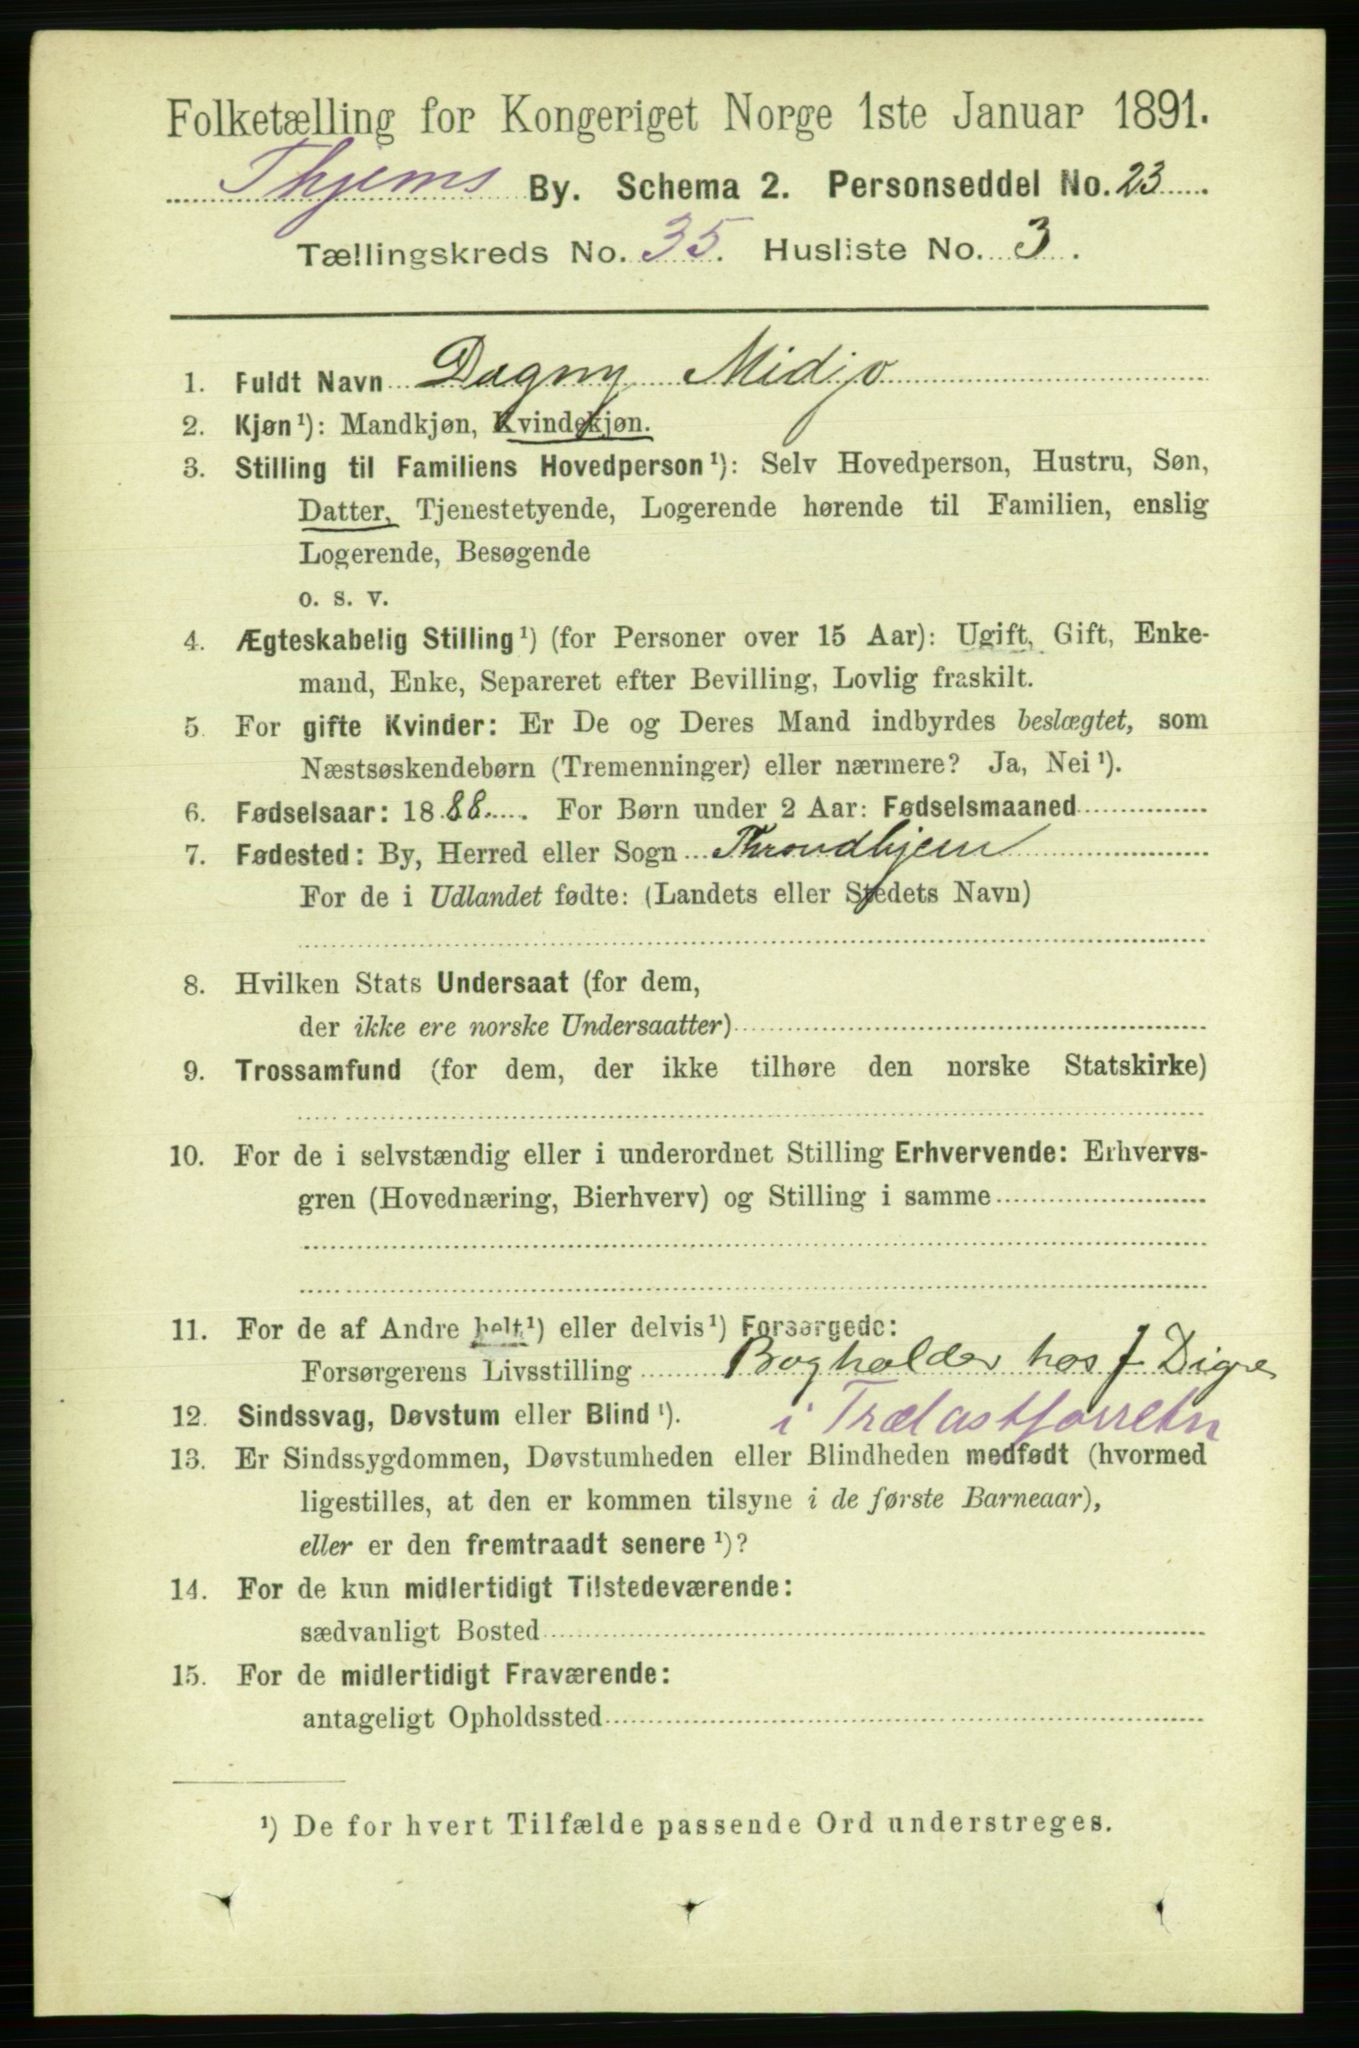 Folketælling for Kongeriget Norge 1ste Januar 1891.
Thjems By. Schema 2. Personseddel No. 23
Tællingskreds No. 35. Husliste No. 3.
1. Fuldt Navn Dagny Midjo
2. Kjøn¹): Mandkjøn, Kvindekjøn.
3. Stilling til Familiens Hovedperson¹): Selv Hovedperson, Hustru, Søn,
Datter, Tjenestetyende, Logerende hørende til Familien, enslig
Logerende, Besøgende
o. s. v.
4. Ægteskabelig Stilling¹) (for Personer over 15 Aar): Ugift, Gift, Enke-
mand, Enke, Separeret efter Bevilling, Lovlig fraskilt.
5. For gifte Kvinder: Er De og Deres Mand indbyrdes beslægtet, som
Næstsøskendebørn (Tremenninger) eller nærmere? Ja, Nei¹).
6. Fødselsaar: 1888. For Børn under 2 Aar: Fødselsmaaned
7. Fødested: By, Herred eller Sogn Throndhjem
For de i Udlandet fødte: (Landets eller Stedets Navn)
8. Hvilken Stats Undersaat (for dem,
der ikke ere norske Undersaatter)
9. Trossamfund (for dem, der ikke tilhøre den norske Statskirke)
10. For de i selvstændig eller i underordnet Stilling Erhvervende: Erhvervs-
gren (Hovednæring, Bierhverv) og Stilling i samme
11. For de af Andre helt¹) eller delvis¹) Forsørgede:
Forsørgerens Livsstilling Bogholder hos J Digre
i Trælastforretn
12. Sindssvag, Døvstum eller Blind¹).
13. Er Sindssygdommen, Døvstumheden eller Blindheden medfødt (hvormed
ligestilles, at den er kommen tilsyne i de første Barneaar),
eller er den fremtraadt senere¹)?
14. For de kun midlertidigt Tilstedeværende:
sædvanligt Bosted
15. For de midlertidigt Fraværende:
antageligt Opholdssted
¹) De for hvert Tilfælde passende Ord understreges.